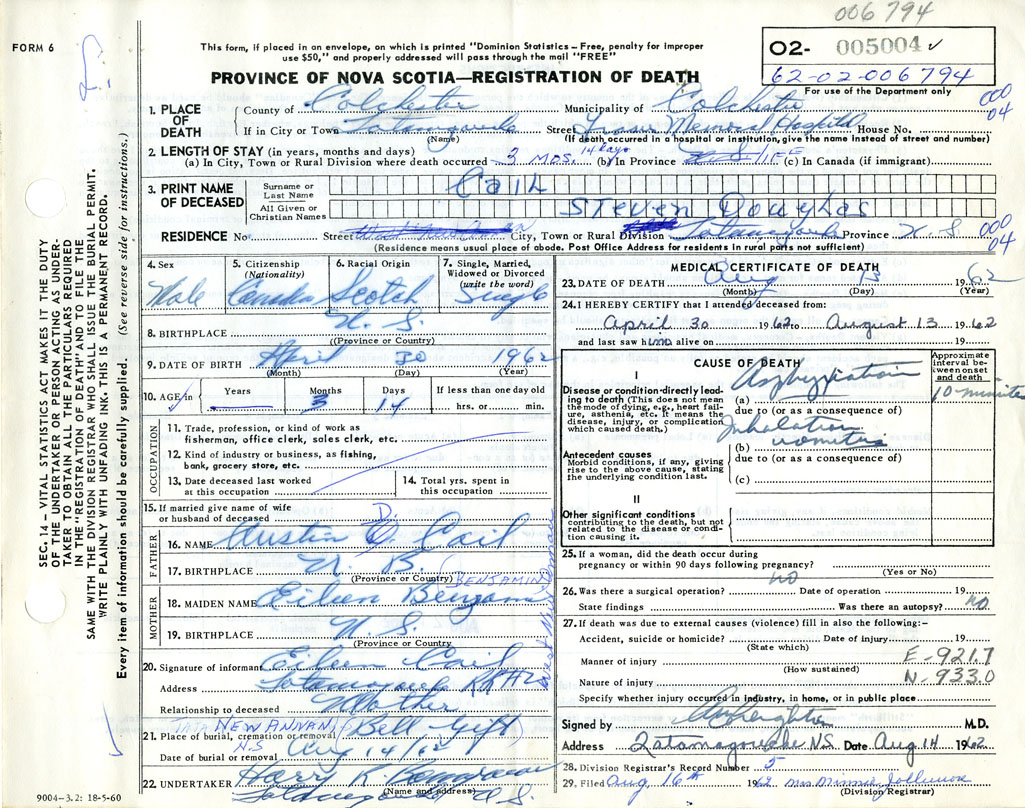 006794
FORM 6
This form, if placed in an envelope, on which is printed "Dominion Statistics – Free, penalty for improper
use $50," and properly addressed will pass through the mail "FREE"
O2- 005004 ✓
62-02-006794
For use of the Department only
PROVINCE OF NOVA SCOTIA—REGISTRATION OF DEATH
000
04
1. PLACE OF DEATH
County of Colchester Municipality of Colchester
If in City or Town Tatamagouche Street Memorial Hospital House No.
(Name) (If death occurred in a hospital or institution, give the name instead of street and number)
2. LENGTH OF STAY (in years, months and days)
(a) In City, Town or Rural Division where death occurred 3 mos. 14 days (b) In Province LIFE (c) In Canada (if immigrant)
3. PRINT NAME OF DECEASED
Surname or Last Name Cail
All Given or Christian Names Steven Douglas
RESIDENCE No. Street City, Town or Rural Division Tatamagouche Province N. S.
000
04
(Residence means usual place of abode. Post Office Address for residents in rural parts not sufficient)
4. Sex
Male
5. Citizenship (Nationality)
Canada
6. Racial Origin
Scotch
7. Single, Married, Widowed or Divorced (write the word)
Single
8. BIRTHPLACE N. S.
(Province or Country)
9. DATE OF BIRTH April 30 1962
(Month) (Day) (Year)
10. AGE in Years Months 3 Days 14 If less than one day old
hrs. or min.
OCCUPATION
11. Trade, profession, or kind of work as
fisherman, office clerk, sales clerk, etc.
12. Kind of industry or business, as fishing,
bank, grocery store, etc.
13. Date deceased last worked
at this occupation
14. Total yrs. spent in
this occupation
15. If married give name of wife
or husband of deceased
FATHER
16. NAME Austin D. Cail
D.
17. BIRTHPLACE N. B.
(Province or Country)
MOTHER
(BENJAMIN)
18. MAIDEN NAME Eileen Benjamin
19. BIRTHPLACE N. S.
(Province or Country)
20. Signature of informant Eileen Cail
Address Tatamagouche RR #2
Relationship to deceased Mother
21. Place of burial, cremation or removal
TATA NEW ANNAN (Bell Gift)
N.S
Date of burial or removal Aug 14/62
22. UNDERTAKER Harry K.
(Name and address)
Tatamagouche N. S.
9004-3.2: 18-5-60
MEDICAL CERTIFICATE OF DEATH
23. DATE OF DEATH Aug 13 1962
(Month) (Day) (Year)
24. I HEREBY CERTIFY that I attended deceased from:
April 30 1962 to August 13 1962
and last saw him alive on 19
CAUSE OF DEATH
Approximate interval between onset and death
I
Disease or condition directly leading to death (This does not mean the mode of dying, e.g., heart failure, asthenia, etc. It means the disease, injury, or complication which caused death.)
(a) Asphyxiation
10 minutes
due to (or as a consequence of)
Inhalation
vomitus
(b)
Antecedent causes
Morbid conditions, if any, giving rise to the above cause, stating the underlying condition last.
due to (or as a consequence of)
(c)
II
Other significant conditions
contributing to the death, but not related to the disease or condition causing it.
25. If a woman, did the death occur during
pregnancy or within 90 days following pregnancy?
(Yes or No)
26. Was there a surgical operation? no Date of operation 19
State findings Was there an autopsy? no
27. If death was due to external causes (violence) fill in also the following:-
Accident, suicide or homicide? Date of injury 19
(State which)
Manner of injury E-921.7
(How sustained)
Nature of injury N-933.0
Specify whether injury occurred in industry, in home, or in public place
Signed by M.D.
Address Tatamagouche N.S. Date Aug. 14 1962
28. Division Registrar's Record Number 5
29. Filed Aug 16th 1962 Mrs Minnie
(Division Registrar)
SEC. 14 – VITAL STATISTICS ACT MAKES IT THE DUTY
OF THE UNDERTAKER OR PERSON ACTING AS UNDER-
TAKER TO OBTAIN ALL THE PARTICULARS REQUIRED
IN THE "REGISTRATION OF DEATH" AND TO FILE THE
SAME WITH THE DIVISION REGISTRAR WHO SHALL ISSUE THE BURIAL PERMIT.
WRITE PLAINLY WITH UNFADING INK. THIS IS A PERMANENT RECORD.
Every item of information should be carefully supplied. (See reverse side for instructions.)